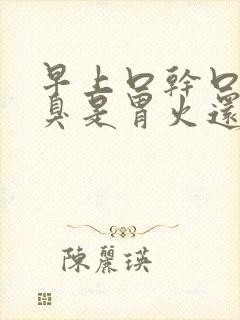 早上口幹口
臭是胃火還
陳麗瑛